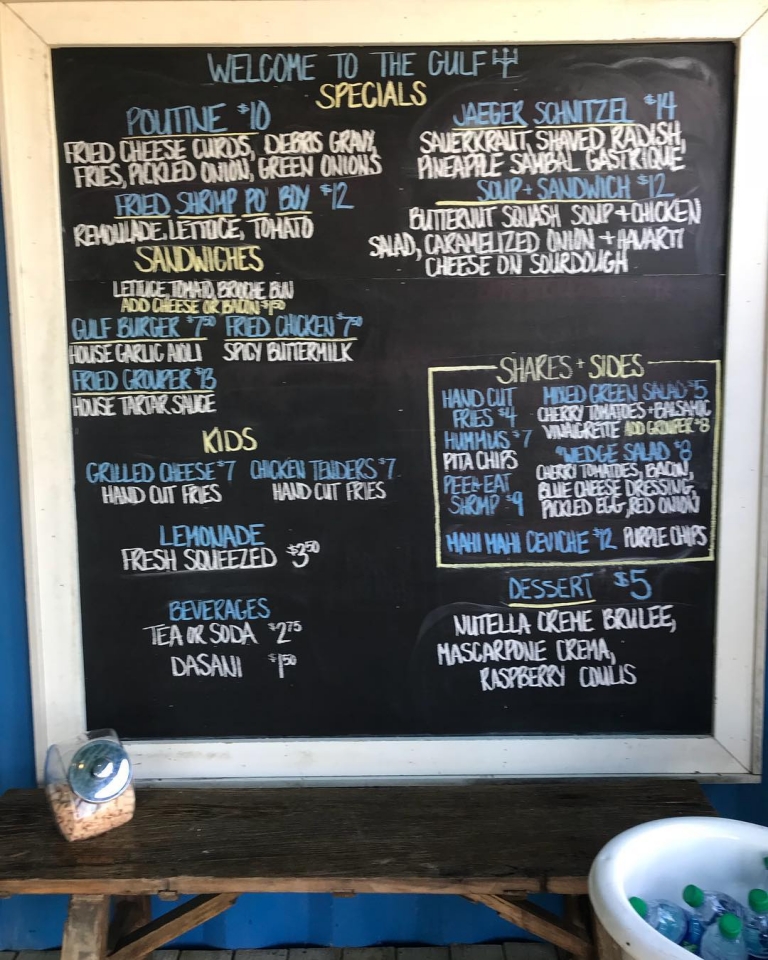 WELCOME TO THE GULF
SPECIALS
POUTINE $10
FRIED CHEESE CURDS, DEBRIS GRAVY,
FRIES, PICKLED ONION, GREEN ONIONS
FRIED SHRIMP PO' BOY $12
REMOULADE, LETTUCE, TOMATO
JAEGER SCHNITZEL $14
SAUERKRAUT, SHAVED RADISH,
PINEAPPLE SAMBAL GASTRIQUE
SOUP + SANDWICH $12
BUTTERNUT SQUASH SOUP + CHICKEN
SALAD, CARAMELIZED ONION + HAVARTI
CHEESE ON SOURDOUGH
SANDWICHES
LETTUCE, TOMATO, BRIOCHE BUN
ADD CHEESE OR BACON $1.50
GULF BURGER $7.50
HOUSE GARLIC AIOLI
FRIED CHICKEN $7.50
SPICY BUTTERMILK
FRIED GROUPER $13
HOUSE TARTAR SAUCE
KIDS
GRILLED CHEESE $7
HAND CUT FRIES
CHICKEN TENDERS $7
HAND CUT FRIES
LEMONADE
FRESH SQUEEZED $3.50
BEVERAGES
TEA OR SODA $2.75
DASANI $1.50
SHARES + SIDES
HAND CUT
FRIES $4
HUMMUS $7
PITA CHIPS
PEEL+EAT
SHRIMP $9
MIXED GREEN SALAD $5
CHERRY TOMATOES + BALSAMIC
VINAIGRETTE ADD GROUPER $8
WEDGE SALAD $8
CHERRY TOMATOES, BACON,
BLUE CHEESE DRESSING,
PICKLED EGG, RED ONION
MAHI MAHI CEVICHE $12 PURPLE CHIPS
DESSERT $5
NUTELLA CREME BRULEE,
MASCARPONE CREMA,
RASPBERRY COULIS